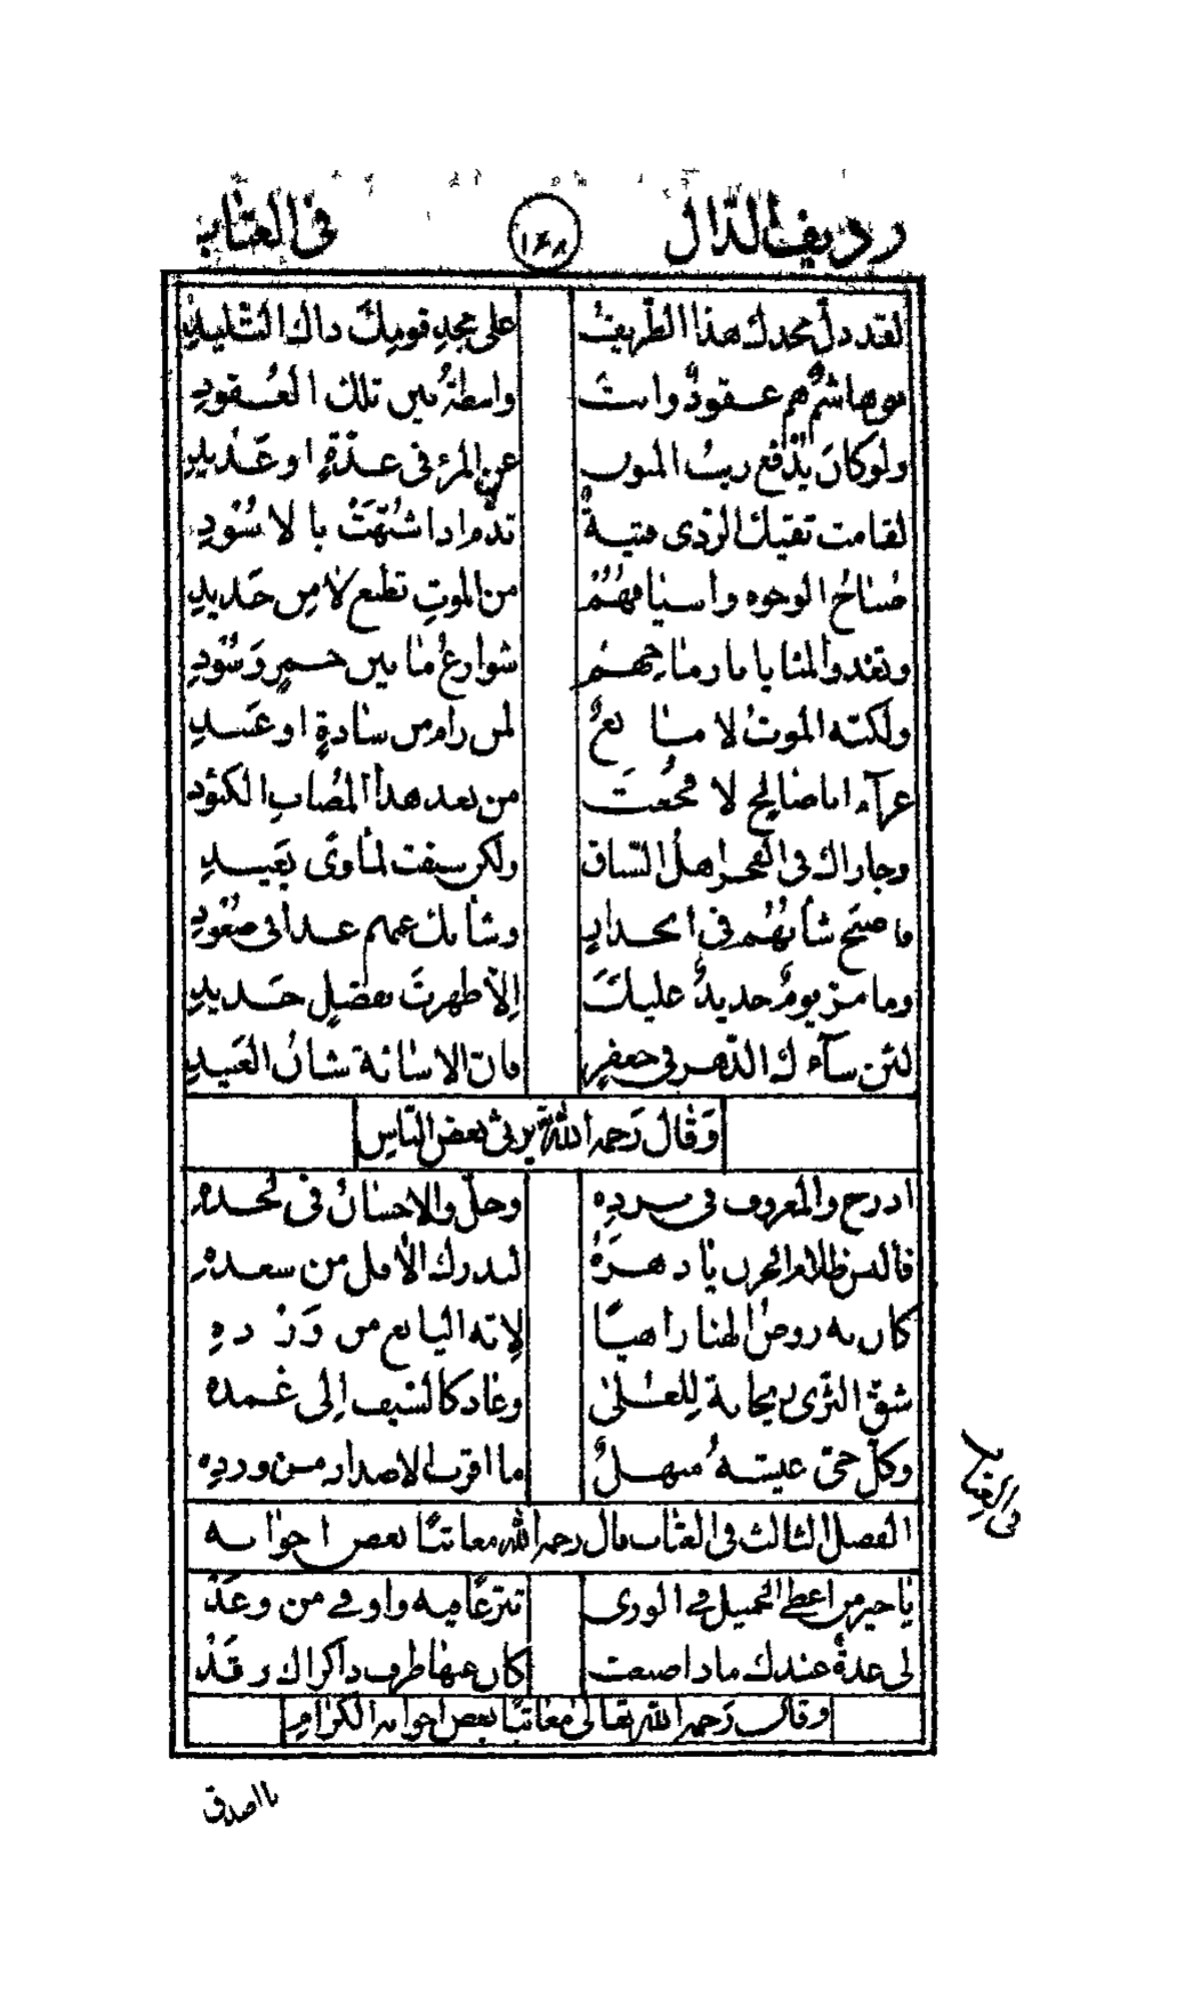 رديف الدّال ١٤٨ في العتاب
لقد دلّ مجدك هذا الطّريف على مجدِ قومِكَ ذاك التّليدِ
بنو هاشمٌ هم عقودٌ وانت واسطةُ بين تلك العُقودِ
ولو كانَ يُدفع ريبُ المنون عن المرء في عدّةٍ او عَديدِ
لقامت تقيك الرّدى فتيةٌ تذمّ اذا شُبّهَتْ بالاسُودِ
صُباحُ الوجوه واسيافهُمُ من الموتِ تطبع لا من حَديدِ
وتغدو المنايا بارماحِهِم شوارعُ ما بين حمرٍ وَسُودِ
ولكنّه الموتُ لا مانعٌ لمن رام من سادةٍ او عَبيدِ
عزآء ابا صالحٍ لا فجُعتَ من بعد هذا المُصابِ الكئودِ
وجاراك في الفخر اهل السّباق ولكن سبقت لمأوىً بَعيدِ
فاصبَح شأنهُم في انحدارٍ وشأنك عنهم غدا في صُعُودِ
وما مرّ يومٌ جديدٌ عليكَ اِلاّ ظهرتَ بفضلٍ جَديدِ
لئن سآءك الدّهر في جعفرٍ فان الاسائة شانُ العَبيدِ
وَقال رَحمه الله يرثي بعض النّاسِ
ادرج والمعروف في بردِهِ وحلّ والاحسانُ في لحدهِ
فالبس ظلام الحزن يا دهرَهُ لبدرك الآفل من سعدهِ
كان به روضُ الهنا زاهيًا لانّه اليانع من وَرْدهِ
شقّ الثّرى ريحانة للعُلىٰ وعاد كالسّيف اِلى غمده
وكلّ حيّ عيشهُ منهلٌ ما اقرب الاصدار من وردِه
الفصل الثالث في العتاب قال رحمه الله معاتبًا بعض اخوانه
يا خير من اعطى الجميل في الورى تبرّعًا فيه واوفى من وعَدْ
لي عدةٌ عندك ماذا صنعت كان عنها طرف ذاكراك رقَدْ
وقال رَحمه الله تعالى مُعاتبًا بعض اخوانه الكرام
في العتاب
يا اصدق